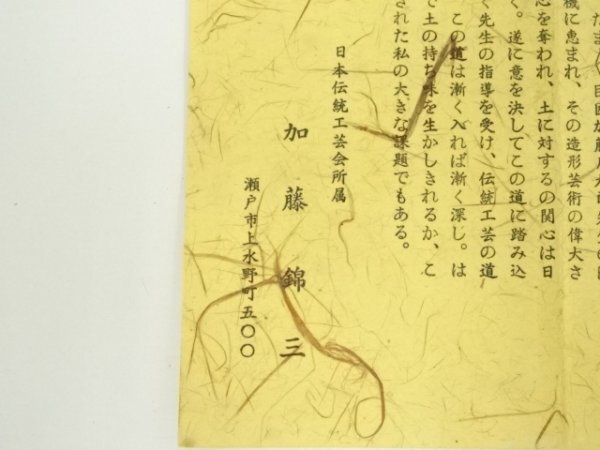 機に恵まれ、その造形芸術の偉大さ
心を奪われ、土に対するの関心は日
く。遂に意を決してこの道に踏み込
く先生の指導を受け、伝統工芸の道
この道は漸く入れば漸く深し。は
で土の持ち味を生かしきれるか、こ
された私の大きな課題でもある。
日本伝統工芸会所属
加藤錦三
瀬戸市上水野町五〇〇